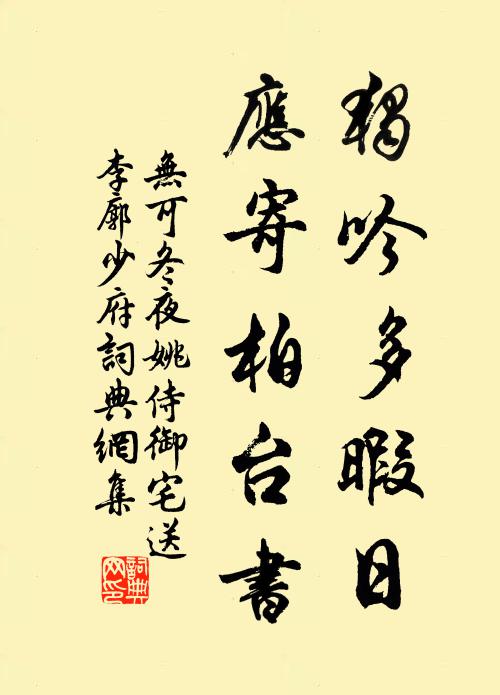 獨吟多暇日
應寄柏台書
無可冬夜姚侍御宅送
李廓少府詞典網集
詞典網印